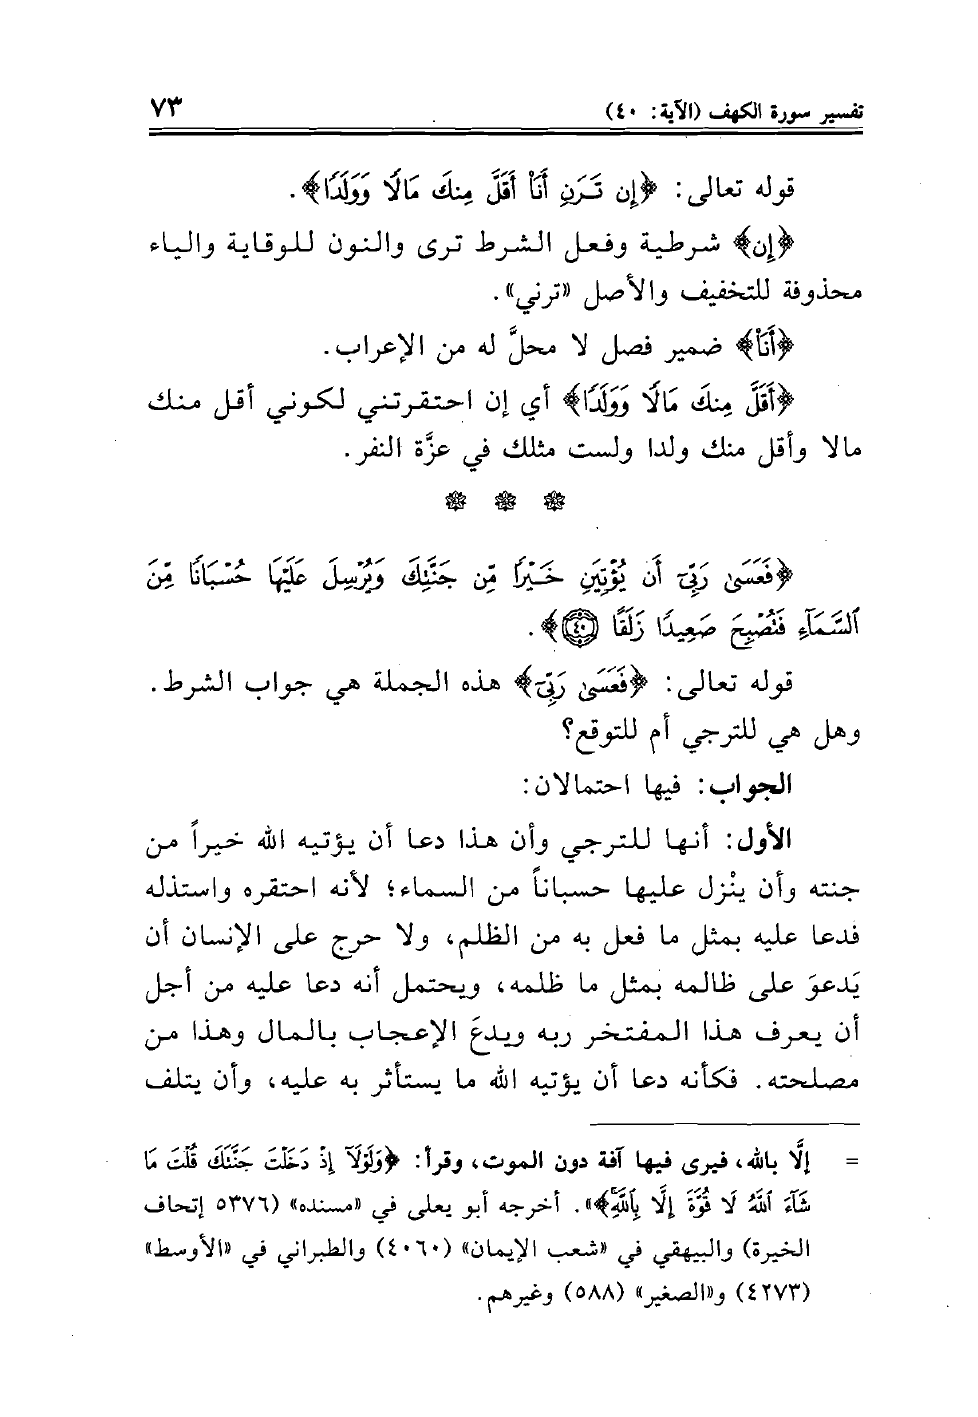 تفسير سورة الكهف (الآية: ٤٠) ٧٣
قوله تعالى: ﴿إِن تَرَنِ أَنَا۠ أَقَلَّ مِنكَ مَالًا وَوَلَدًا﴾.
﴿إِن﴾ شرطية وفعل الشرط ترى والنون للوقاية والياء
محذوفة للتخفيف والأصل «ترني».
﴿أَنَا۠﴾ ضمير فصل لا محلَّ له من الإعراب.
﴿أَقَلَّ مِنكَ مَالًا وَوَلَدًا﴾ أي إن احتقرتني لكوني أقل منك
مالا وأقل منك ولدا ولست مثلك في عزَّة النفر.
❁ ❁ ❁
﴿فَعَسَىٰ رَبِّيٓ أَن يُؤْتِيَنِ خَيْرًا مِّن جَنَّتِكَ وَيُرْسِلَ عَلَيْهَا حُسْبَانًا مِّنَ
ٱلسَّمَآءِ فَتُصْبِحَ صَعِيدًا زَلَقًا ٤٠﴾.
قوله تعالى: ﴿فَعَسَىٰ رَبِّيٓ﴾ هذه الجملة هي جواب الشرط.
وهل هي للترجي أم للتوقع؟
الجواب: فيها احتمالان:
الأول: أنها للترجي وأن هذا دعا أن يؤتيه الله خيراً من
جنته وأن ينْزل عليها حسباناً من السماء؛ لأنه احتقره واستذله
فدعا عليه بمثل ما فعل به من الظلم، ولا حرج على الإنسان أن
يَدعوَ على ظالمه بمثل ما ظلمه، ويحتمل أنه دعا عليه من أجل
أن يعرف هذا المفتخر ربه ويدعَ الإعجاب بالمال وهذا من
مصلحته. فكأنه دعا أن يؤتيه الله ما يستأثر به عليه، وأن يتلف
= إلَّا بالله، فيرى فيها آفة دون الموت، وقرأ: ﴿وَلَوْلَآ إِذْ دَخَلْتَ جَنَّتَكَ قُلْتَ مَا
شَآءَ ٱللَّهُ لَا قُوَّةَ إِلَّا بِٱللَّهِ﴾». أخرجه أبو يعلى في «مسنده» (٥٣٧٦ إتحاف
الخيرة) والبيهقي في «شعب الإيمان» (٤٠٦٠) والطبراني في «الأوسط»
(٤٢٧٣) و«الصغير» (٥٨٨) وغيرهم.